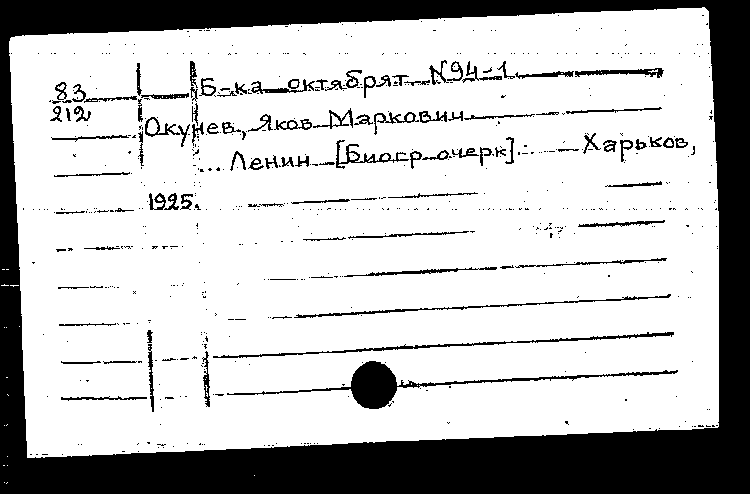 83 Б-ка октябрят N94-1
212
Окунев, Яков Маркович
... Ленин [Биогр. очерк]. — Харьков,
1925.